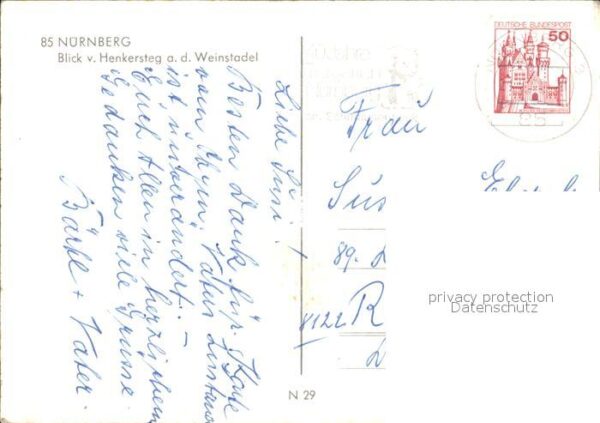 85 NÜRNBERG
Blick v. Henkersteg a. d. Weinstadel
DEUTSCHE BUNDESPOST
50
Liebe Susi!
Besten Dank für Karte
vom Vaters Zustand
ist unverändert.
Euch Allen in herzlichem
Gedanken viele Grüsse
Bärbel + Vater.
Frau
Sus
89.
8122 R
privacy protection
Datenschutz
N 29
85